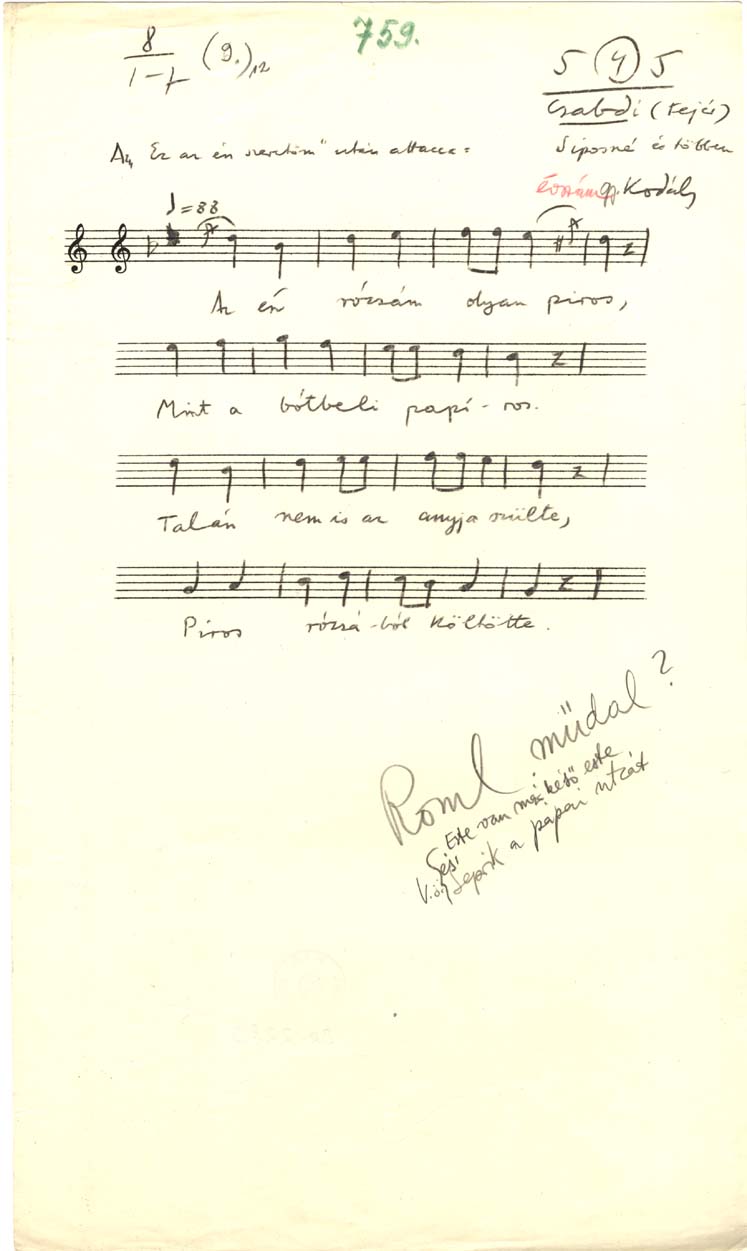 759.
8
1-7
(9.)12
5 (4) 5
Csabdi (Fejér)
Siposné és többen
Az „Ez az én szeretőm" után attacca:
évszám gy. Kodály
♩=88
Az én rózsám olyan piros,
Mint a bótbeli papí-ros.
Talán nem is az anyja szülte,
Piros rózsá-ból költötte.
Roml. műdal?
Este van már késő este
és
V.ö. Seprik a pápai utcát